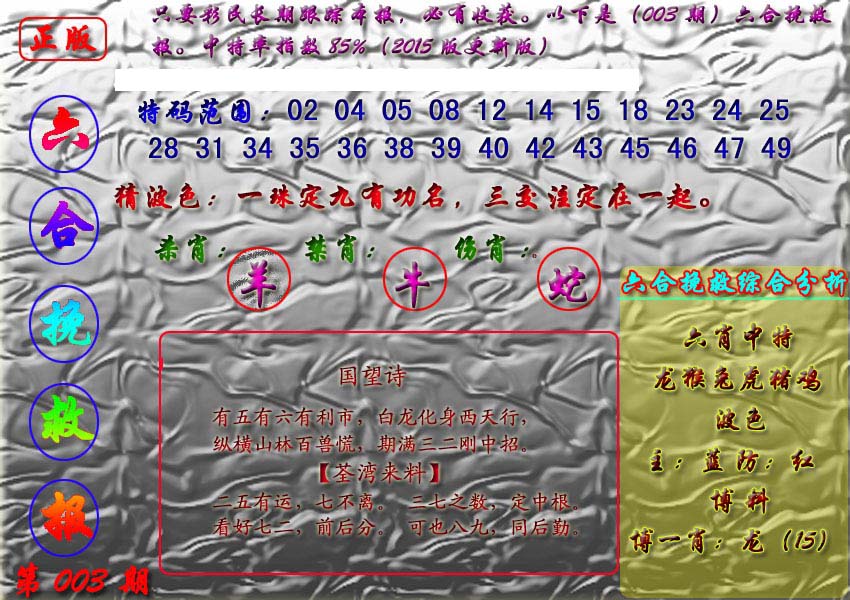 正版
只要彩民长期跟踪本报，必有收获。以下是（003期）六合挽救
报。中特率指数85%（2015版更新版）
特码范围：02 04 05 08 12 14 15 18 23 24 25
28 31 34 35 36 38 39 40 42 43 45 46 47 49
猜波色：一珠定九有功名，三交注定在一起。
杀肖：羊 禁肖：牛 伤肖：蛇
六合挽救报
第003期
国望诗
有五有六有利市，白龙化身西天行，
纵横山林百兽慌，期满三二刚中招。
【荃湾来料】
二五有运，七不离。三七之数，定中根。
看好七二，前后分。可也八九，同后勤。
六合挽救综合分析
六肖中特
龙猴兔虎猪鸡
波色
主：蓝防：红
博料
博一肖：龙（15）